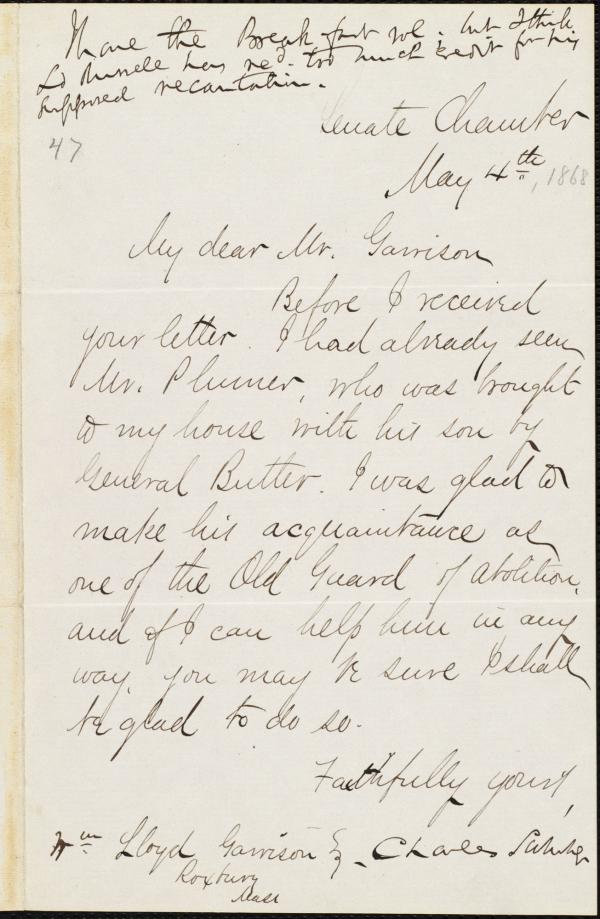 I have the Break-fast vol; but I think
Ld Russell has rec'd. too much credit for his
supposed recantation.
Senate Chamber
47
May 4th, 1868
My dear Mr. Garrison
Before I received
your letter. I had already seen
Mr. Plumer, who was brought
to my house with his son by
General Butler. I was glad to
make his acquaintance as
one of the Old Guard of Abolition,
and if I can help him in any
way, you may be sure I shall
be glad to do so.
Faithfully yours,
Charles Sumner
Wm Lloyd Garrison Esq.
Roxbury
Mass